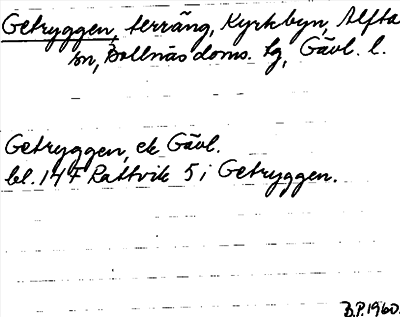 Getryggen, terräng, Kyrkbyn, Alfta
sn, Bollnäs doms. tg, Gävl. l.
Getryggen, ek Gävl.
bl. 14 F Rättvik 5 i Getryggen.
B.P. 1960.